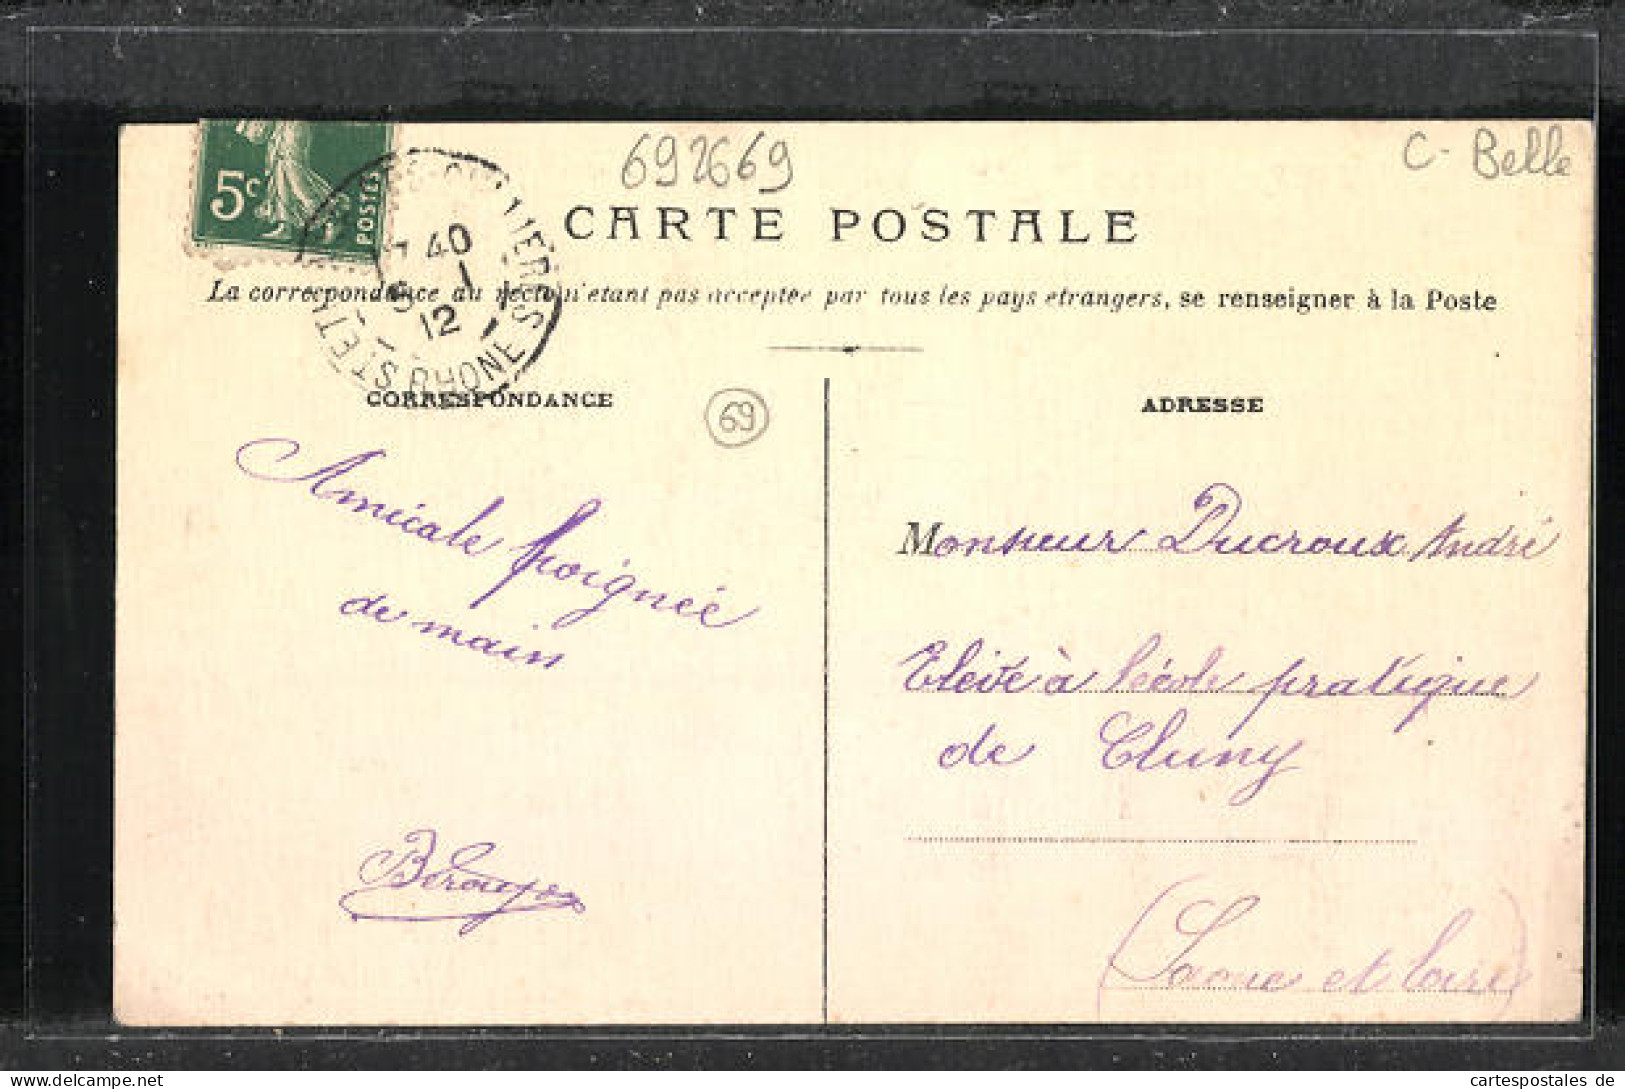 692669
C- Belle
5c
POSTES
7 40
5 1
12
RHONE
CARTE POSTALE
La correspondance au recto n'étant pas acceptée par tous les pays étrangers, se renseigner à la Poste
CORRESPONDANCE
69
Amicale poignée
de main
ADRESSE
Monsieur Ducroux André
Elève à l'école pratique
de Cluny
(Saone et Loire)
cartespostales de